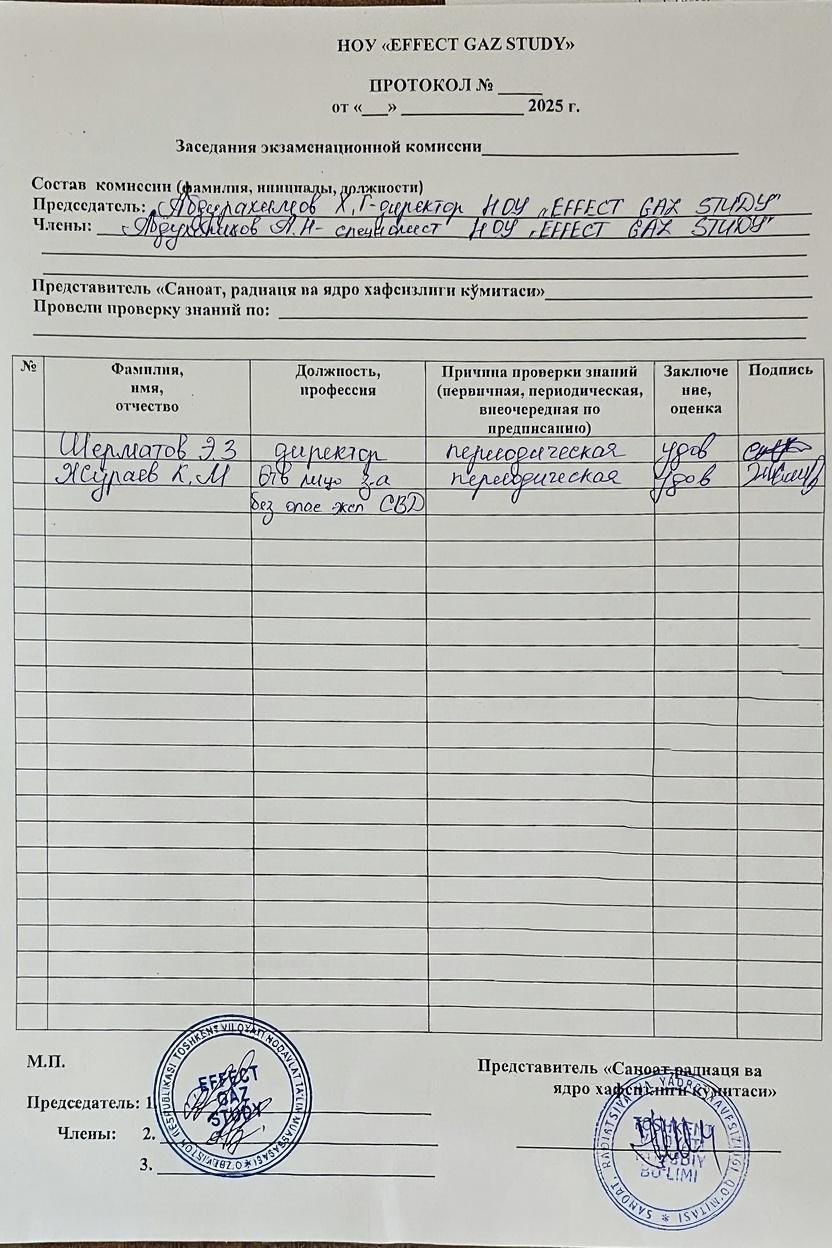 НОУ «EFFECT GAZ STUDY»
ПРОТОКОЛ № _____
от «___» ______________ 2025 г.
Заседания экзаменационной комиссии
Состав комиссии (фамилия, инициалы, должности)
Председатель: Абдурахимов Х.Г-директор НОУ „EFFECT GAZ STUDY"
Члены: А.Н- специалист НОУ „EFFECT GAZ STUDY"
Представитель «Саноат, радиаця ва ядро хафсизлиги кўмитаси»
Провели проверку знаний по:
№ Фамилия, имя, отчество Должность, профессия Причина проверки знаний (первичная, периодическая, внеочередная по предписанию) Заключение, оценка Подпись
Шерматов Э.З директор периодическая удов
Жураев К.М Отв лицо з-а периодическая Удов
без опас эксп СВД
М.П.
Председатель: 1.
Члены: 2.
3.
Представитель «Саноат, радиаця ва
ядро хафсизлиги кўмитаси»
EFFECT
GAZ
STUDY
O'ZBEKISTON RESPUBLIKASI TOSHKENT VILOYATI NODAVLAT TA'LIM MUASSASASI
SANOAT, RADIATSIYA VA YADRO XAVFSIZLIGI QO'MITASI
BO'LIMI